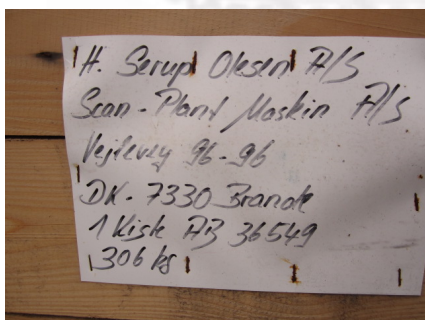 H. Serup Olesen A/S
Scan-Plant Maskin A/S
Vejlevej 96-96
DK-7330 Brande
1 Kiste AB 36549
306 kg